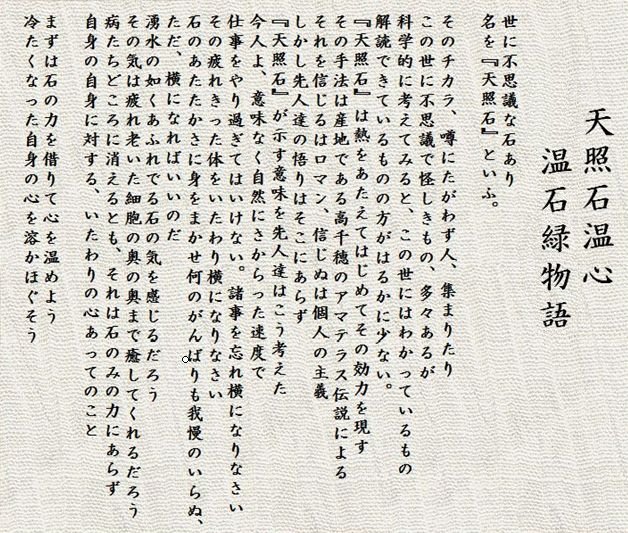 天照石温心
温石緑物語
世に不思議な石あり
名を『天照石』といふ。
そのチカラ、噂にたがわず人、集まりたり
この世に不思議で怪しきもの、多々あるが
科学的に考えてみると、この世にはわかっているもの
解読できているものの方がはるかに少ない。
『天照石』は熱をあたえてはじめてその効力を現す
その手法は産地である高千穂のアマテラス伝説による
それを信じるはロマン、信じぬは個人の主義
しかし先人達の悟りはそこにあらず
『天照石』が示す意味を先人達はこう考えた
今人よ、意味なく自然にさからった速度で
仕事をやり過ぎてはいけない。諸事を忘れ横になりなさい
その疲れきった体をいたわり横になりなさい
石のあたたかさに身をまかせ何のがんばりも我慢のいらぬ、
ただ、横になればいいのだ
湧水の如くあふれでる石の気を感じるだろう
その気は疲れ老いた細胞の奥の奥まで癒してくれるだろう
病たちどころに消えるとも、それは石のみの力にあらず
自身の自身に対する、いたわりの心あってのこと
まずは石の力を借りて心を温めよう
冷たくなった自身の心を溶かほぐそう